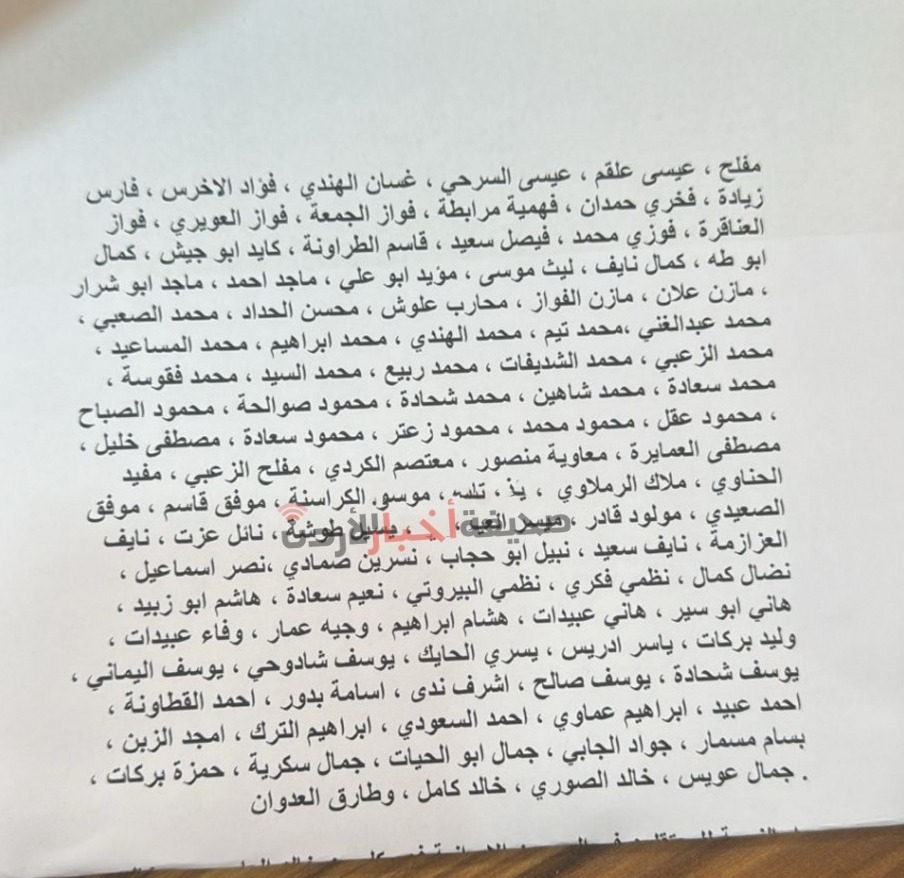 مفلح ، عيسى علقم ، عيسى السرحي ، غسان الهندي ، فؤاد الاخرس ، فارس
زيادة ، فخري حمدان ، فهمية مرابطة ، فواز الجمعة ، فواز العويري ، فواز
العناقرة ، فوزي محمد ، فيصل سعيد ، قاسم الطراونة ، كايد ابو جيش ، كمال
ابو طه ، كمال نايف ، ليث موسى ، مؤيد ابو علي ، ماجد احمد ، ماجد ابو شرار
، مازن علان ، مازن الفواز ، محارب علوش ، محسن الحداد ، محمد الصعبي ،
محمد عبدالغني ،محمد تيم ، محمد الهندي ، محمد ابراهيم ، محمد المساعيد ،
محمد الزعبي ، محمد الشديفات ، محمد ربيع ، محمد السيد ، محمد فقوسة ،
محمد سعادة ، محمد شاهين ، محمد شحادة ، محمود صوالحة ، محمود الصباح
، محمود عقل ، محمود محمد ، محمود زعتر ، محمود سعادة ، مصطفى خليل ،
مصطفى العمايرة ، معاوية منصور ، معتصم الكردي ، مفلح الزعبي ، مفيد
الحناوي ، ملاك الرملاوي ، ، الكراسنة ، موفق قاسم ، موفق
الصعيدي ، مولود قادر ، ميسر ، طوشة ، نائل عزت ، نايف
صحيفة أخبار الأردن
العزازمة ، نايف سعيد ، نبيل ابو حجاب ، نسرين صمادي ،نصر اسماعيل ،
نضال كمال ، نظمي فكري ، نظمي البيروتي ، نعيم سعادة ، هاشم ابو زبيد ،
هاني ابو سير ، هاني عبيدات ، هشام ابراهيم ، وجيه عمار ، وفاء عبيدات ،
وليد بركات ، ياسر ادريس ، يسري الحايك ، يوسف شادوحي ، يوسف اليماني ،
يوسف شحادة ، يوسف صالح ، اشرف ندى ، اسامة بدور ، احمد القطاونة ،
احمد عبيد ، ابراهيم عماوي ، احمد السعودي ، ابراهيم الترك ، امجد الزبن ،
بسام مسمار ، جواد الجابي ، جمال ابو الحيات ، جمال سكرية ، حمزة بركات ،
. جمال عويس ، خالد الصوري ، خالد كامل ، وطارق العدوان